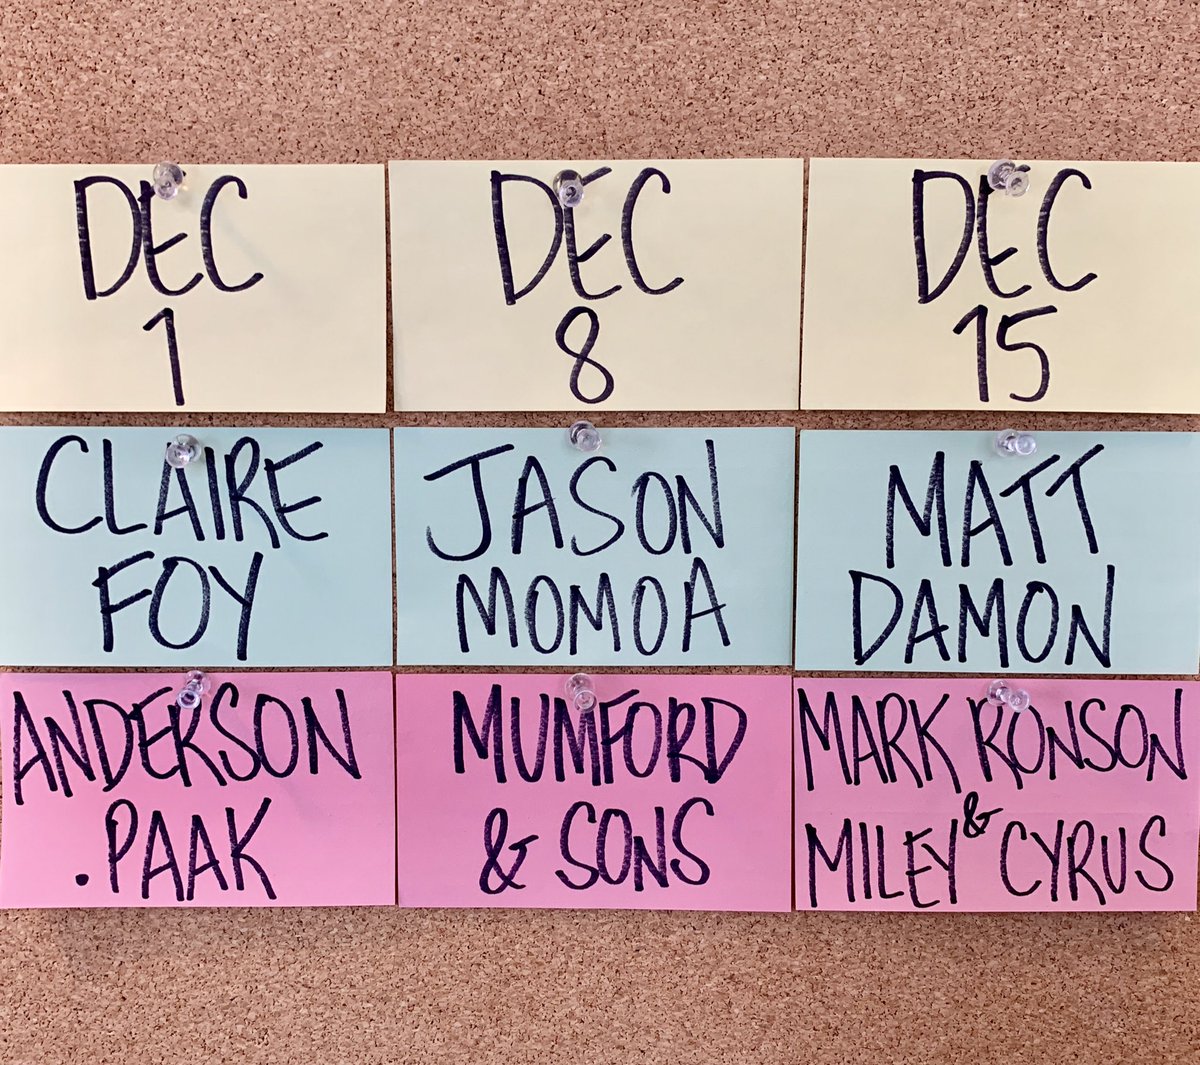 DEC
1
DEC
8
DEC
15
CLAIRE
FOY
JASON
MOMOA
MATT
DAMON
ANDERSON
.PAAK
MUMFORD
& SONS
MARK RONSON
&
MILEY CYRUS